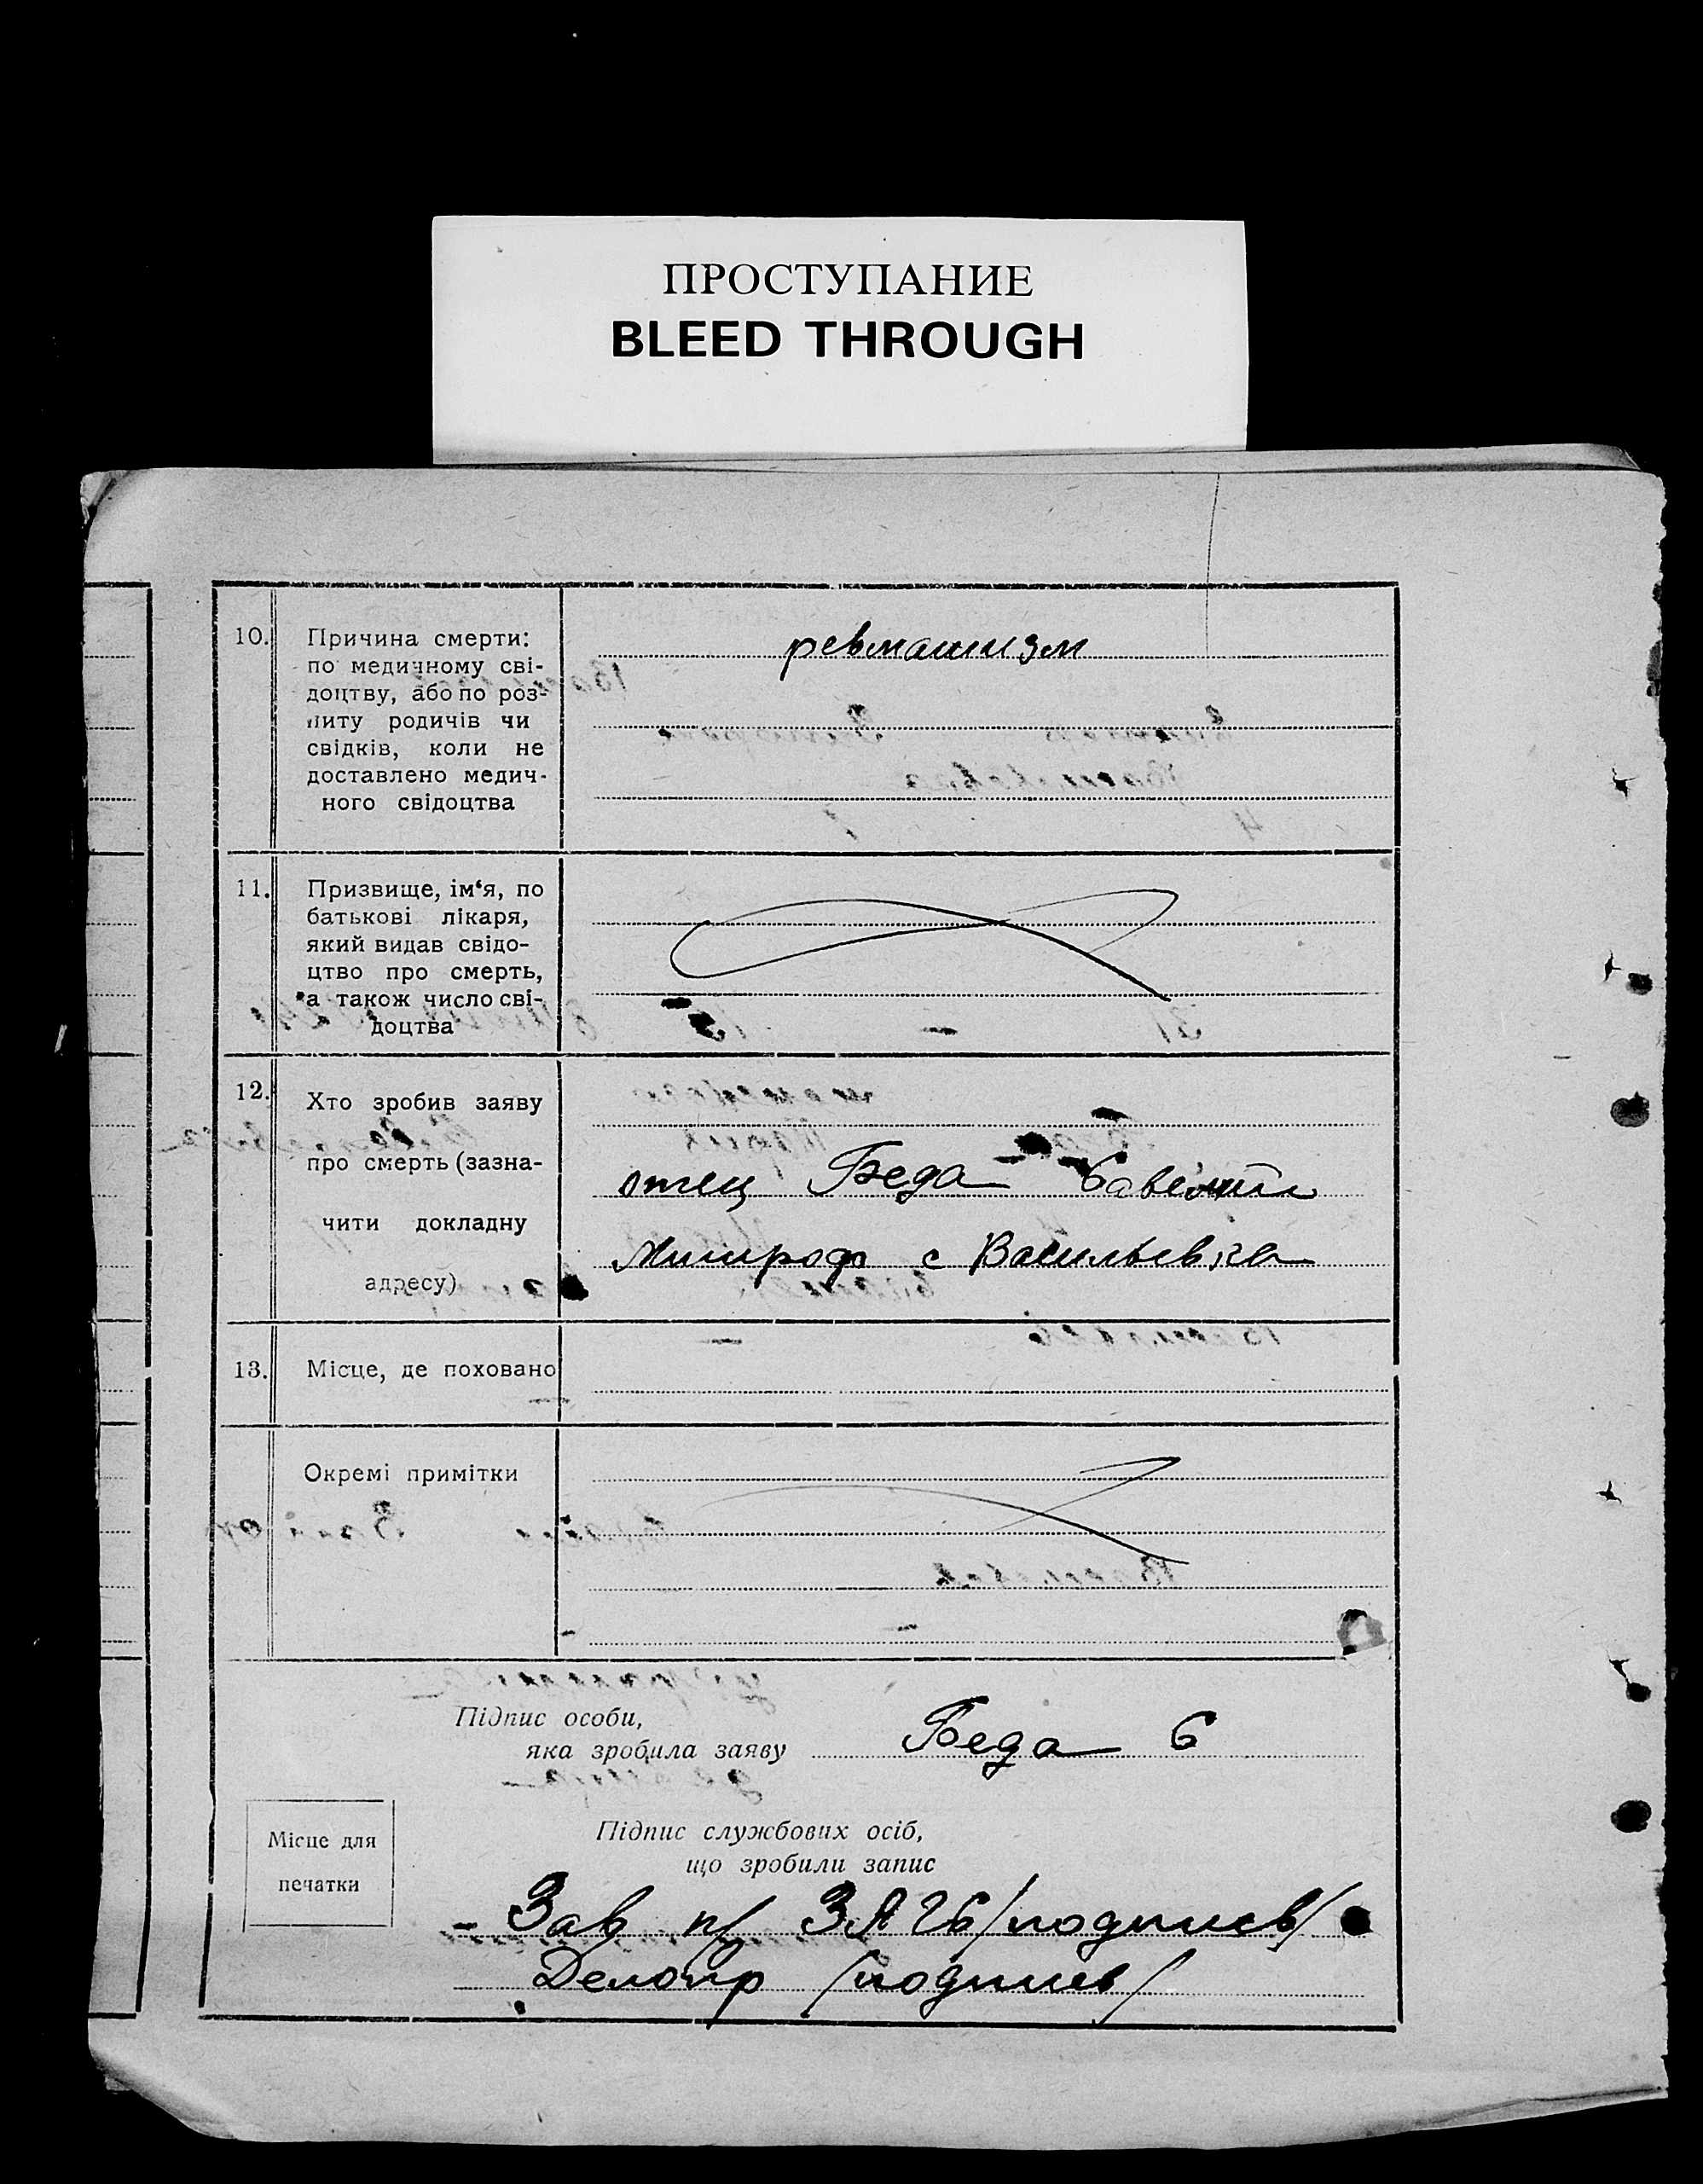 ПРОСТУПАНИЕ
BLEED THROUGH
10. Причина смерти: ревматизм
по медичному сві-
доцтву, або по роз-
питу родичів чи
свідків, коли не
доставлено медич-
ного свідоцтва
11. Призвище, ім‘я, по
батькові лікаря,
який видав свідо-
цтво про смерть,
а також число сві-
доцтва
12. Хто зробив заяву
про смерть (зазна-
отец Беда
чити докладну
с Васильевка
адресу)
13. Місце, де поховано
Окремі примітки
Підпис особи,
яка зробила заяву Беда С
Місце для
печатки
Підпис службових осіб,
що зробили запис
Зав п/ ЗАГС /подпись/
Делопр /подпись/